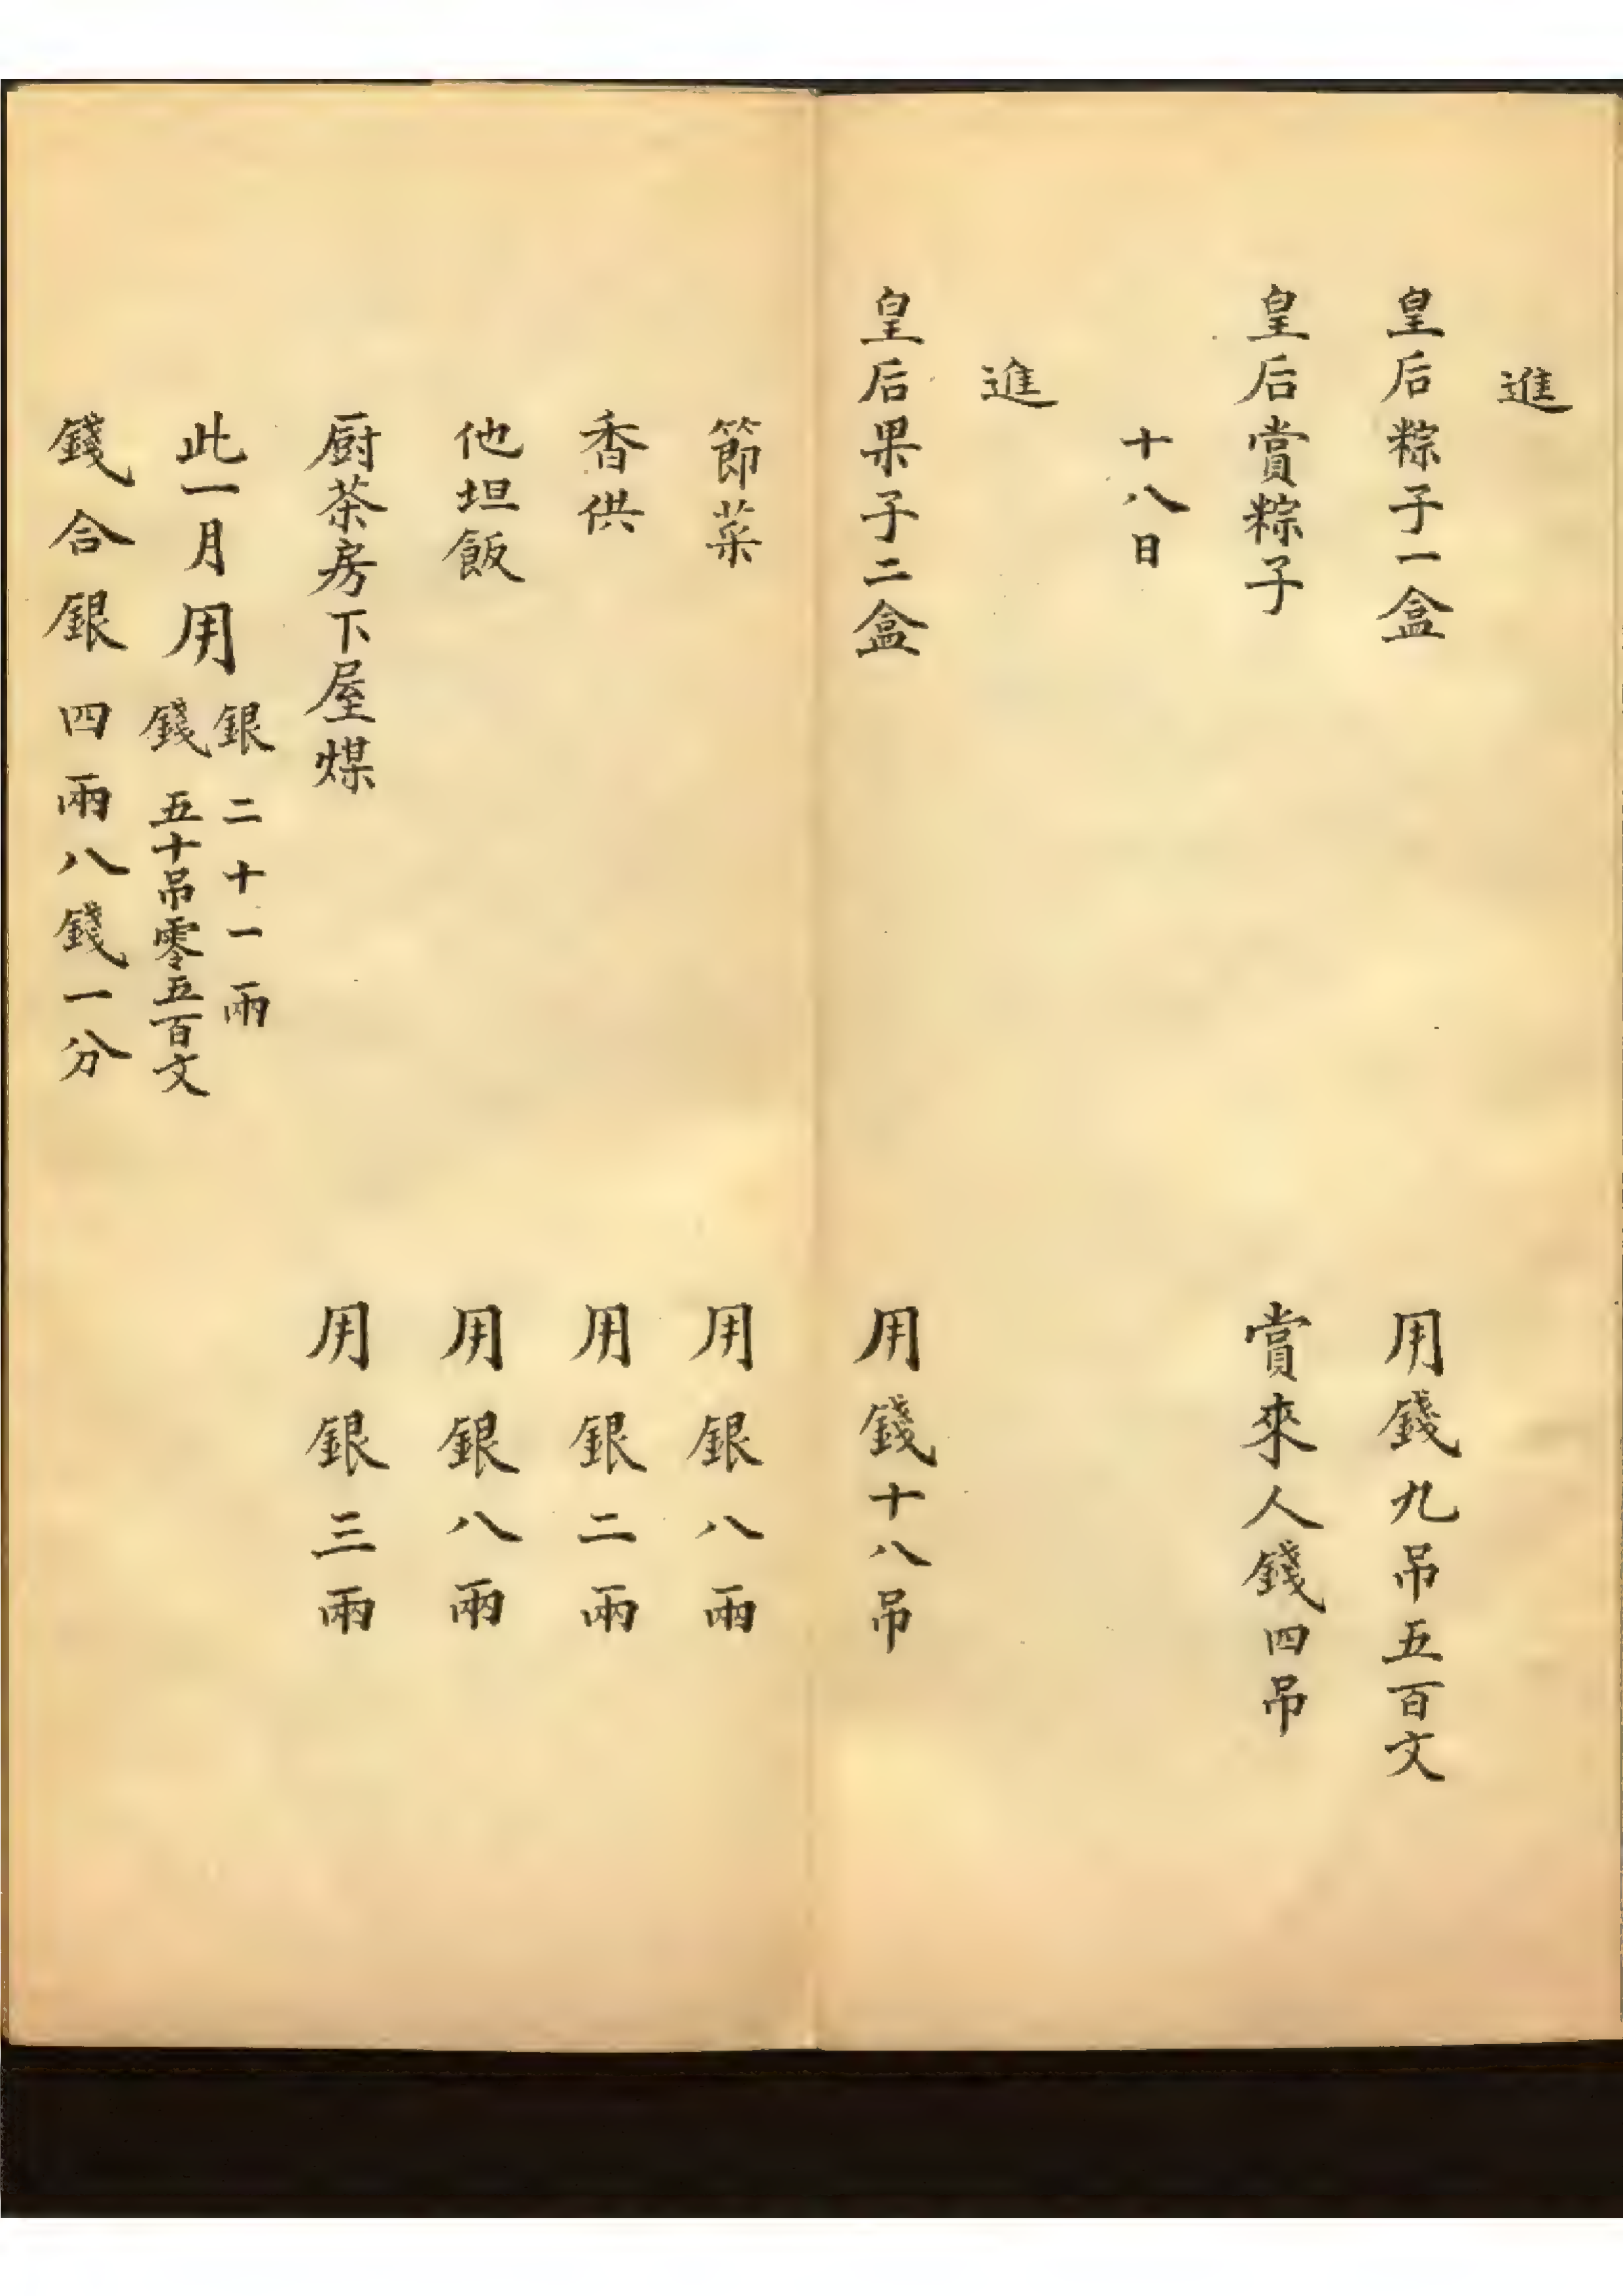 進
皇后粽子一盒 用錢九吊五百文
皇后賞粽子 賞來人錢四吊
十八日
進
皇后果子二盒 用錢十八吊
節菜 用銀八兩
香供 用銀二兩
他坦飯 用銀八兩
厨茶房下屋煤 用銀三兩
此一月用 銀二十一兩
錢五十吊零五百文
錢合銀四兩八錢一分